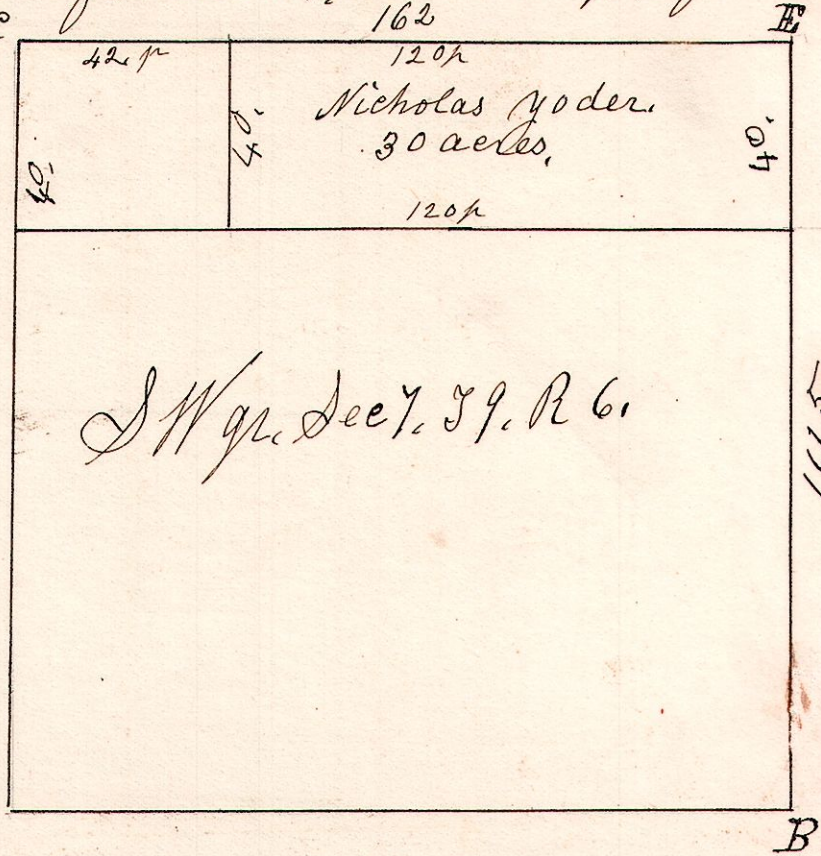 162 E
42 p 120 p
Nicholas yoder.
40. 40. 30 acres, 40.
120 p
SW qr. Sec 7. T9. R 6.
B